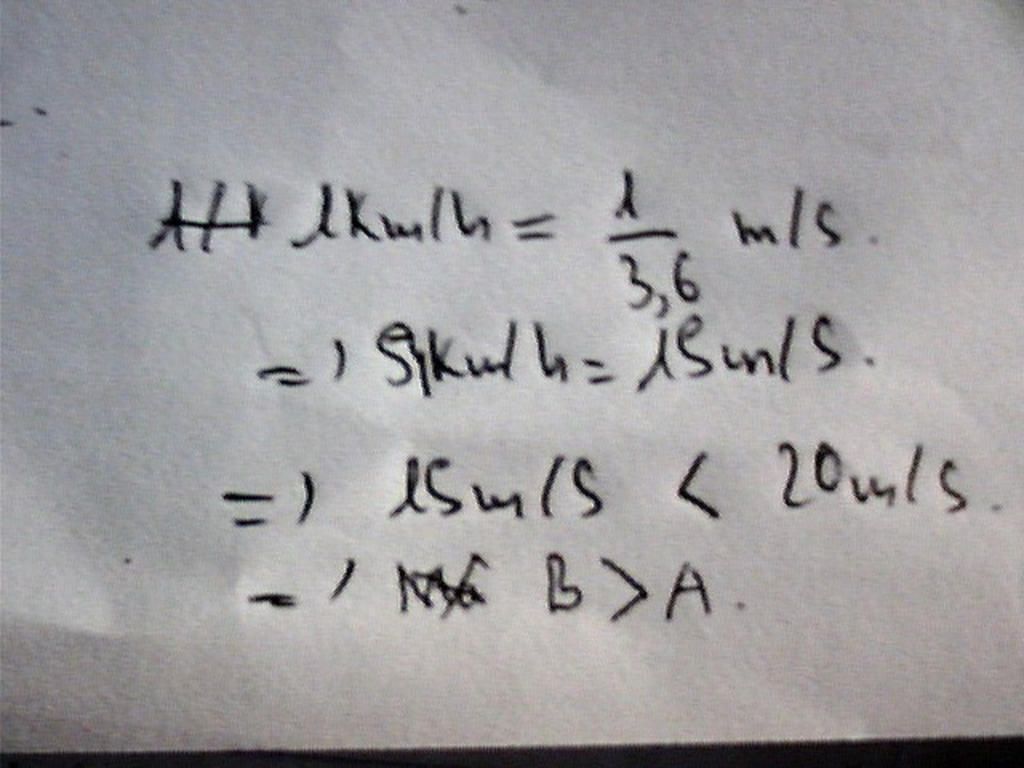 1km/h = 1/3,6 m/s.
=> 54km/h = 15m/s.
=> 15m/s < 20m/s.
=> B > A.